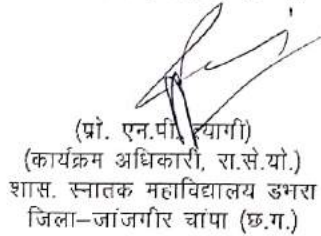 (प्रो. एन.पी. त्यागी)
(कार्यक्रम अधिकारी, रा.से.यो.)
शास. स्नातक महाविद्यालय डभरा
जिला–जांजगीर चांपा (छ.ग.)